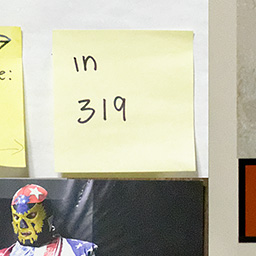 in
319